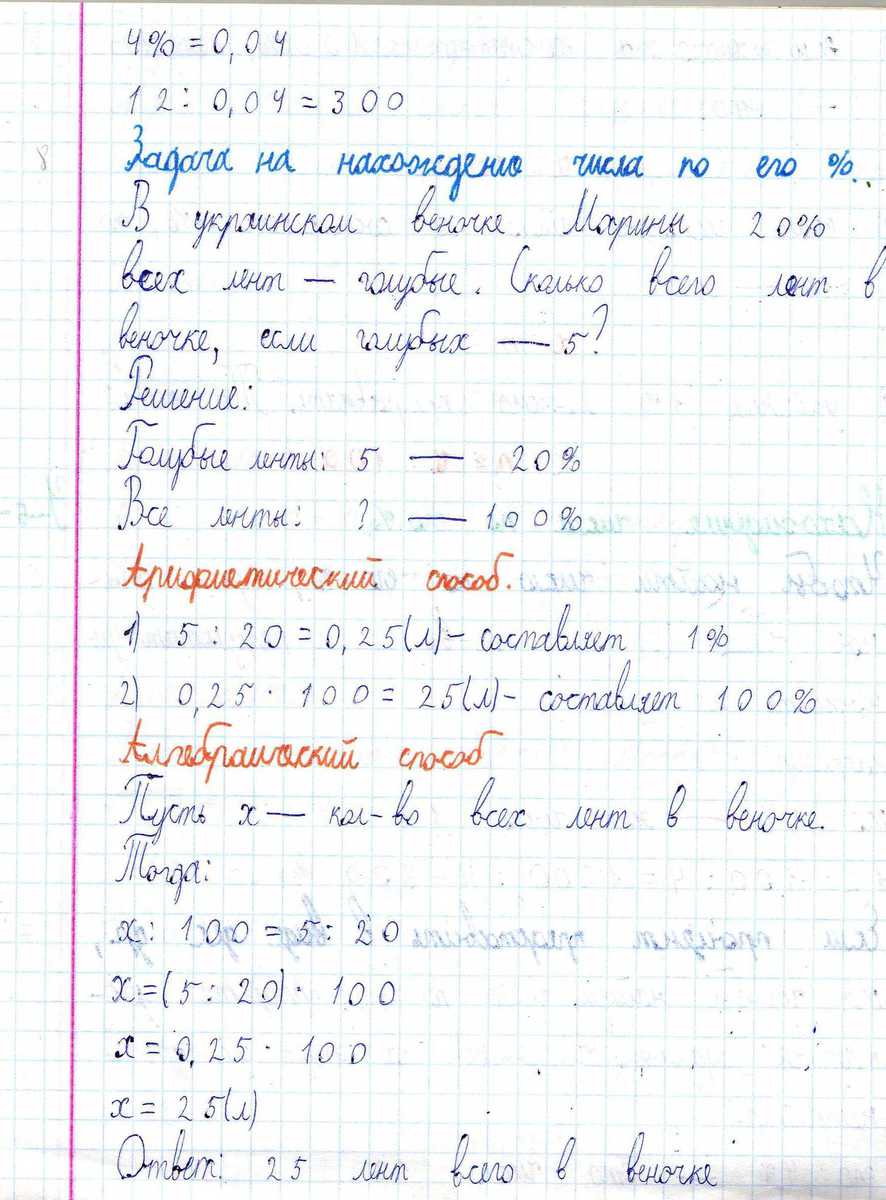 4% = 0,04
12 : 0,04 = 300
Задача на нахождению числа по его %.
В украинском веночке Марины 20%
всех лент — голубые. Сколько всего лент в
веночке, если голубых — 5?
Решение:
Голубые ленты: 5 — 20%
Все ленты: ? — 100%
Арифметический способ.
1) 5 : 20 = 0,25(л) - составляет 1%
2) 0,25 · 100 = 25(л) - составляет 100%
Алгебраический способ
Пусть х — кол-во всех лент в веночке.
Тогда:
х : 100 = 5 : 20
х = (5 : 20) · 100
х = 0,25 · 100
х = 25(л)
Ответ: 25 лент всего в веночке